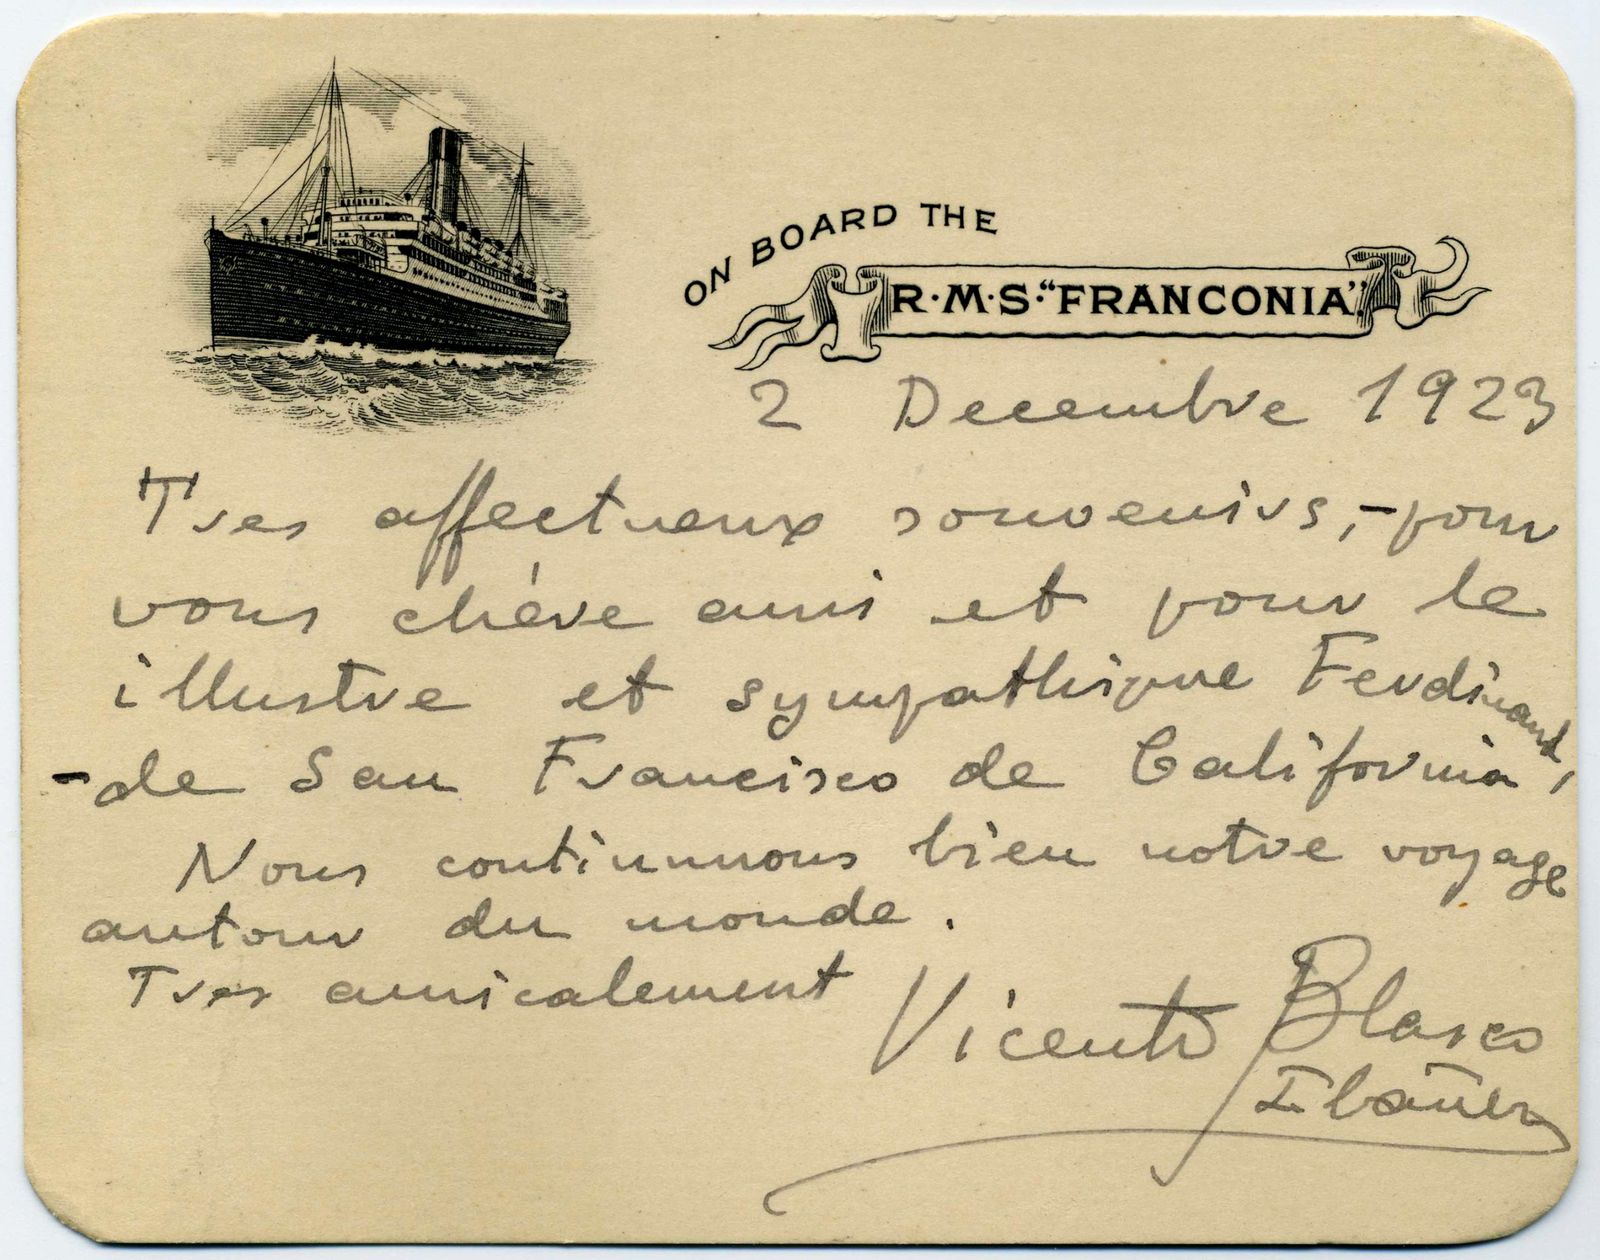 ON BOARD THE
R·M·S·"FRANCONIA".
2 Decembre 1923
Tres affectueux souvenirs, - pour
vous chère ami et pour le
illustre et sympathique Ferdinand,
- de San Francisco de California,
Nous continunuons bien notre voyage
autour du monde.
Tres amicalement
Vicente Blasco
Ibañez